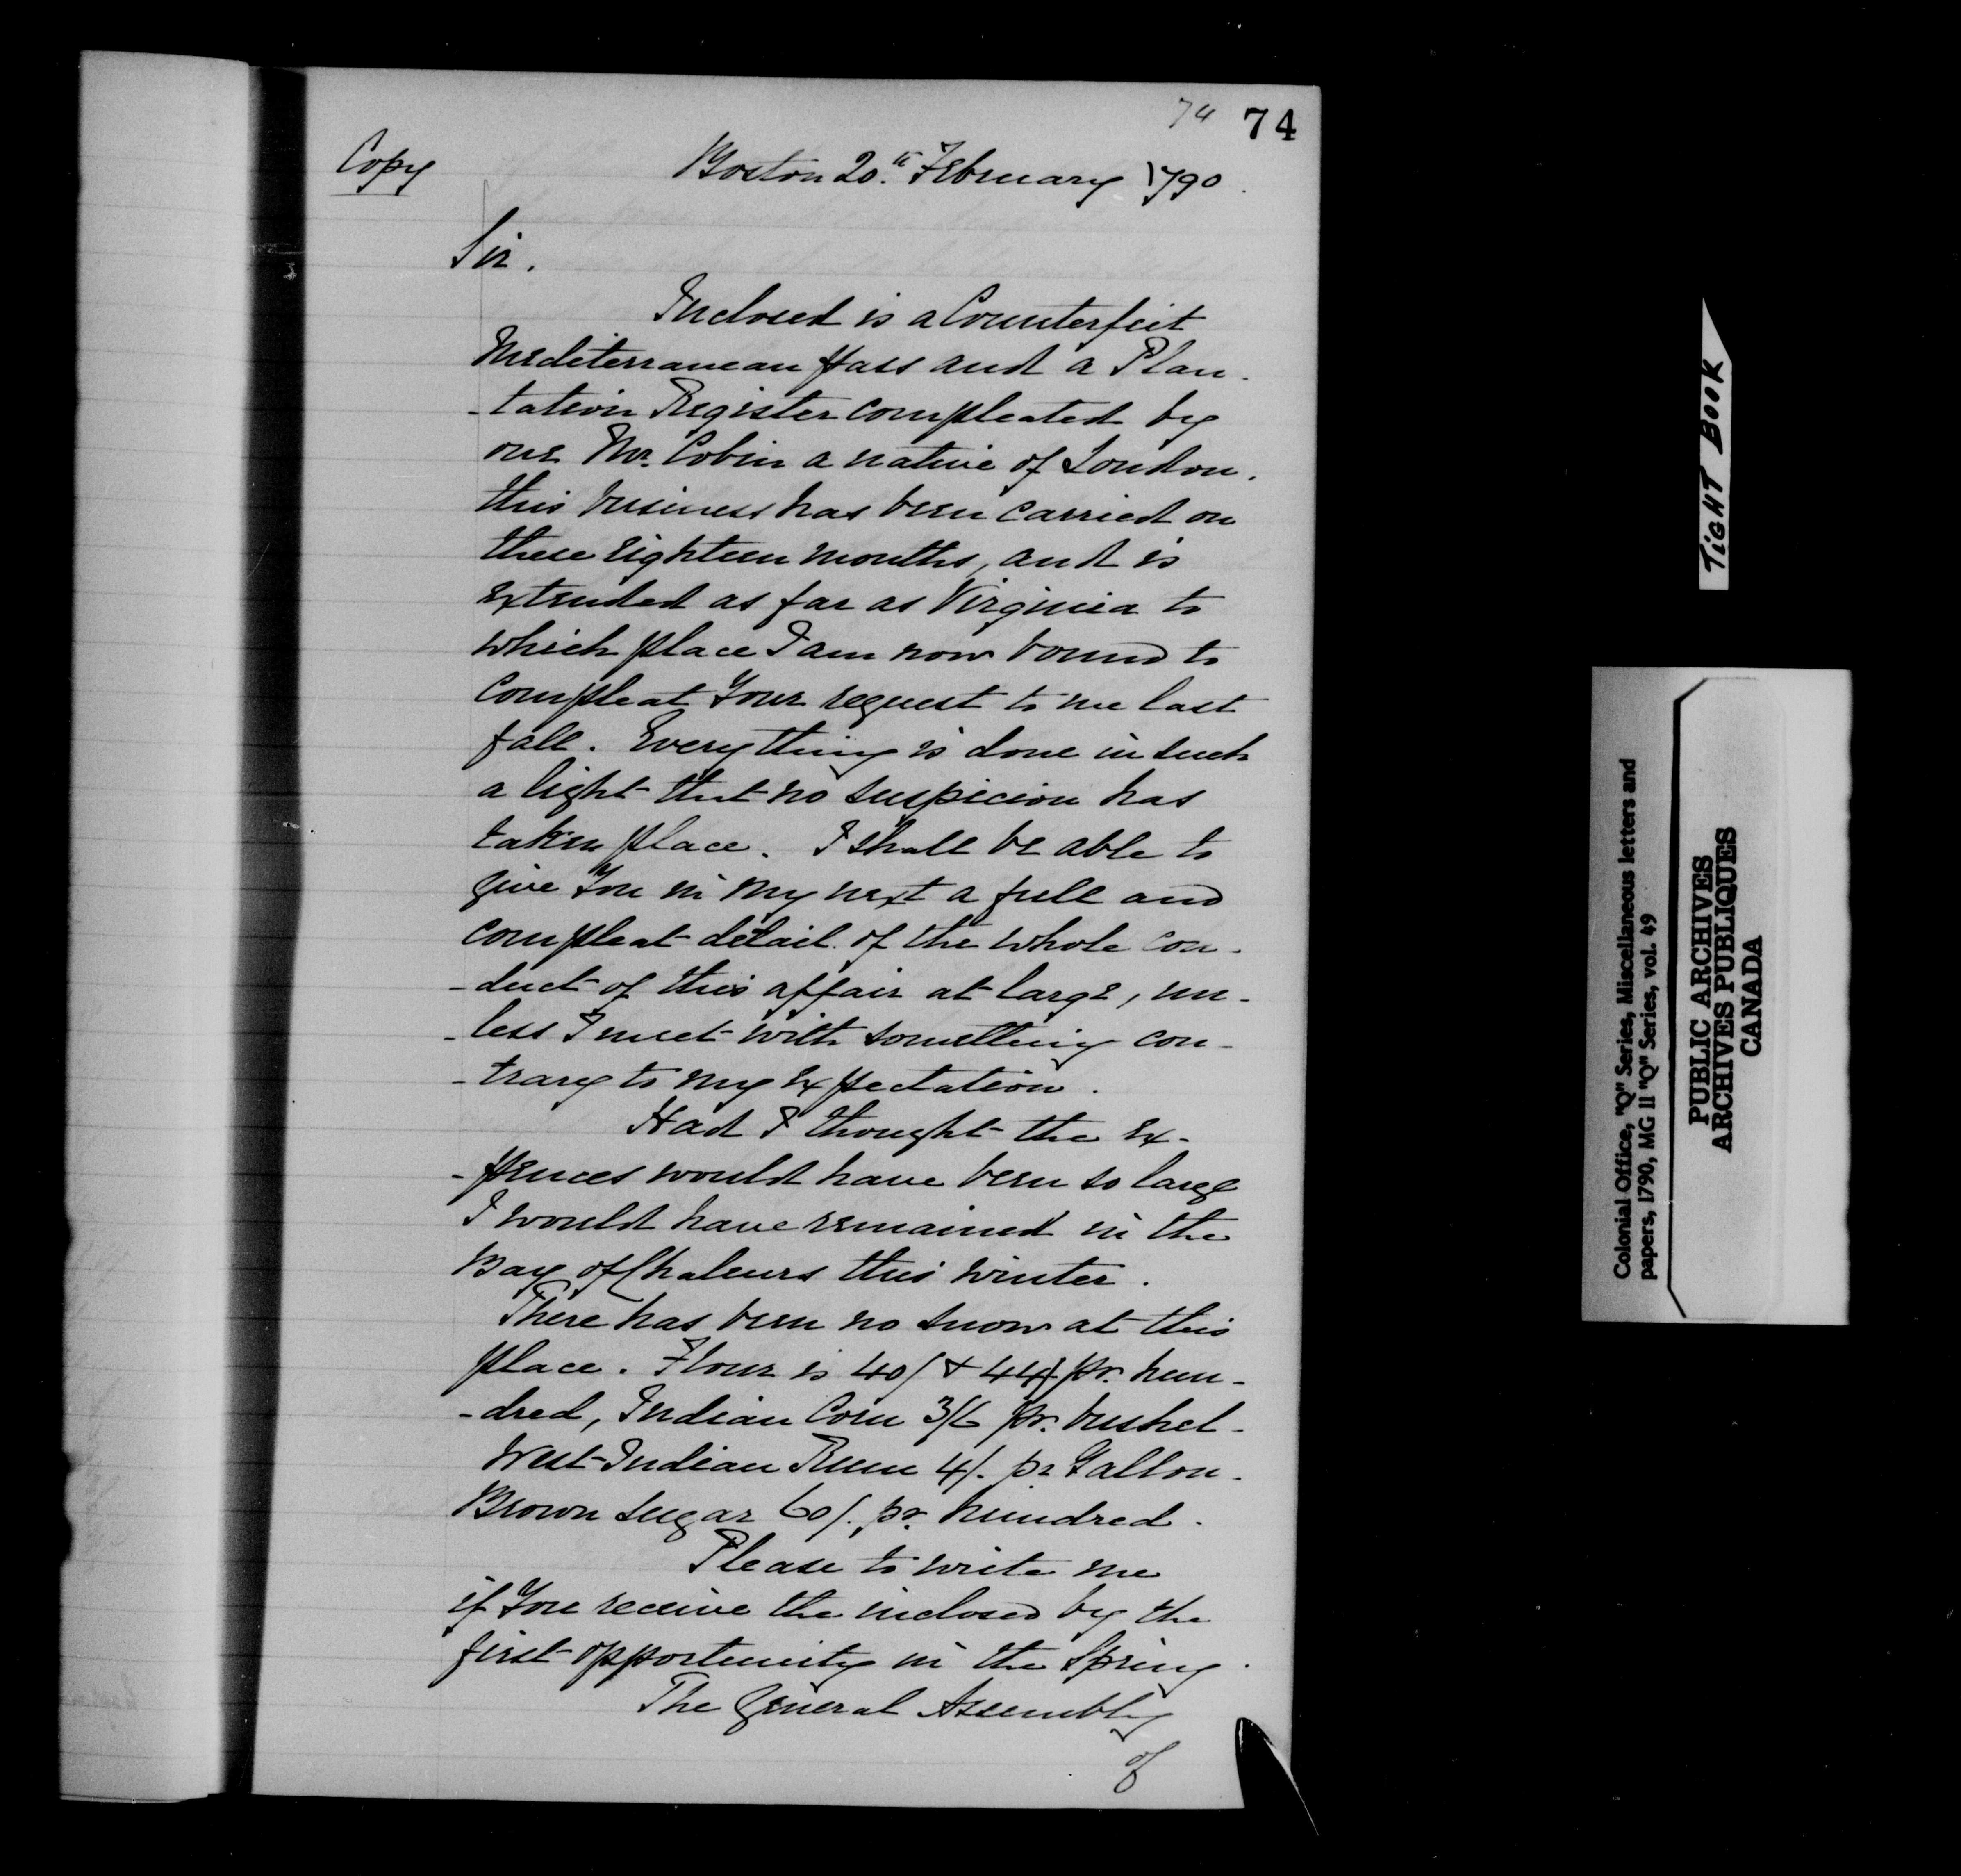 74 74
Copy
Boston 20.th February 1790.
Sir.
Inclosed is a Counterfeit
Mediterranean Pass and a Plan-
-tation Register compleated by
one Mr. Cobin a native of London.
this business has been carried on
these eighteen months, and is
extended as far as Virginia to
which place I am now bound to
compleat Your request to me last
fall. Every thing is done in such
a light that no suspicion has
taken place. I shall be able to
give You in my next a full and
compleat detail of the whole con-
-duct of this affair at large, un-
-less I meet with something con-
-trary to my expectation.
Had I thought the ex-
-pences would have been so large
I would have remained in the
Bay of Chaleurs this winter.
There has been no snow at this
place. Flour is 40/ & 44/ pr. hun-
-dred, Indian Corn 3/6 pr. bushel-
West-Indian Rum 4/. pr Gallon-
Brown Sugar 60/. pr. hundred.
Please to write me
if You receive the inclosed by the
first opportunity in the Spring.
The General Assembly
of
TIGHT BOOK
Colonial Office, "Q" Series, Miscellaneous letters and
papers, 1790, MG 11 "Q" Series, vol. 49
PUBLIC ARCHIVES
ARCHIVES PUBLIQUES
CANADA